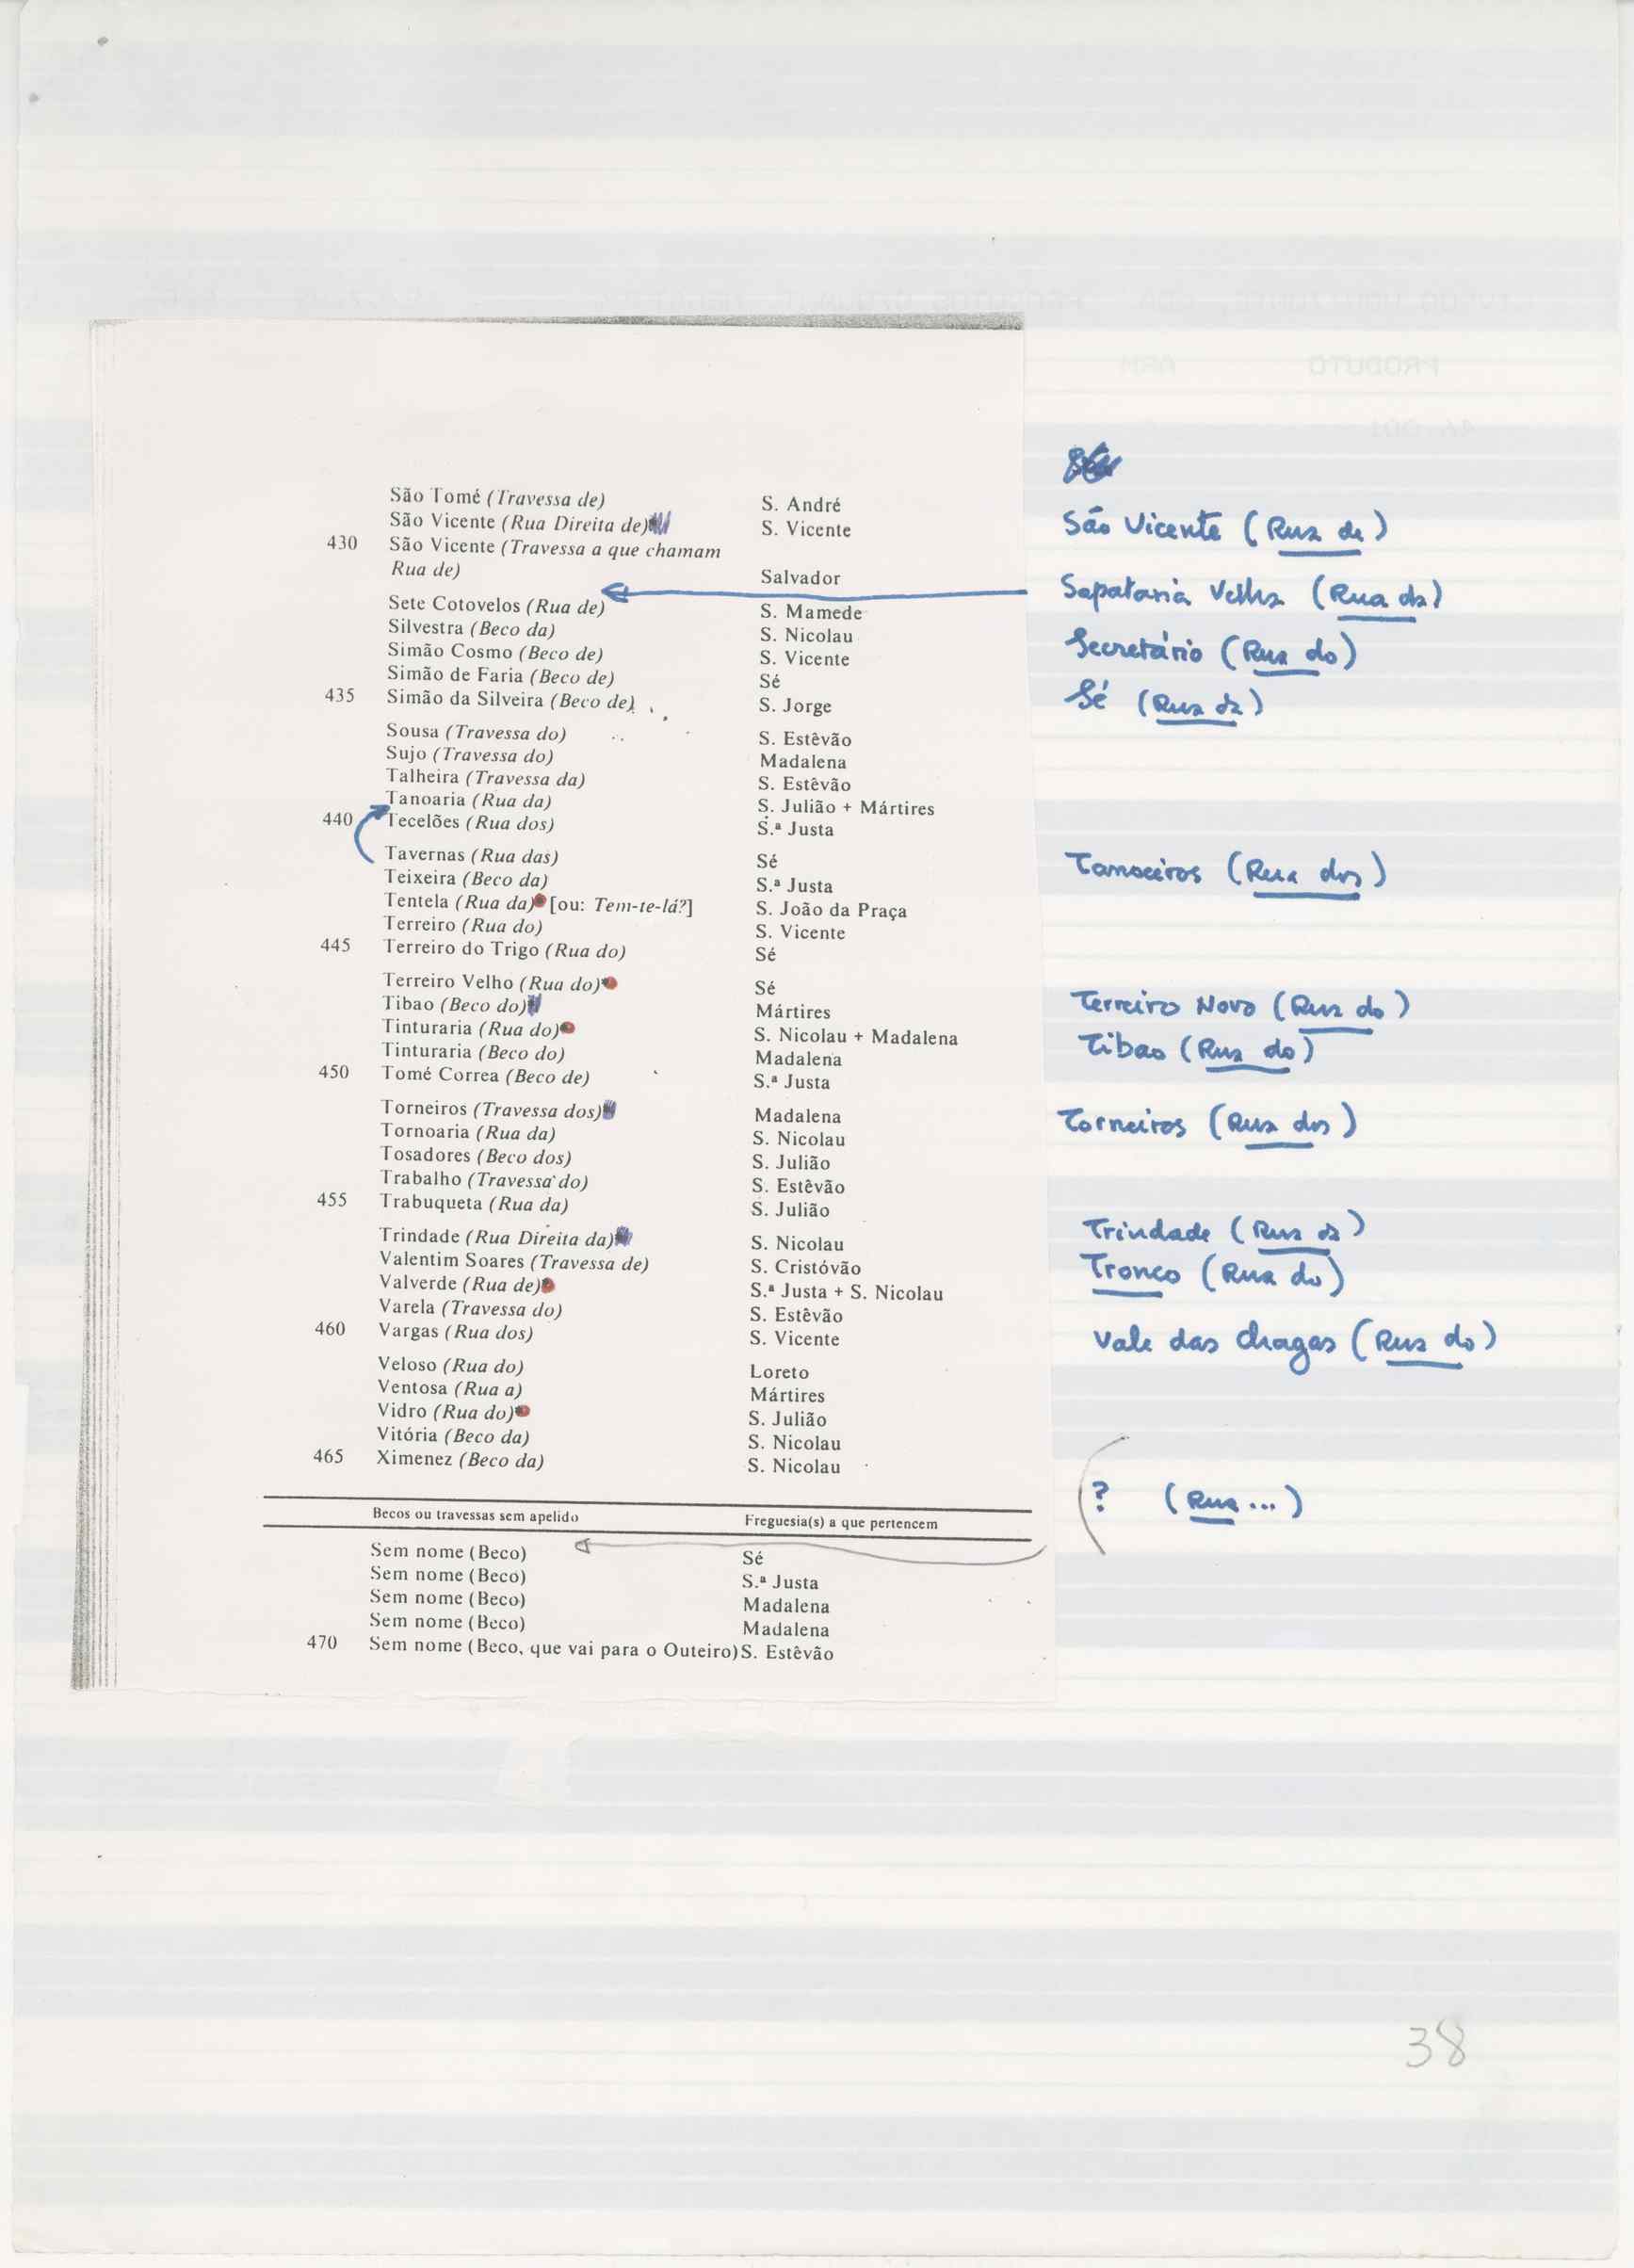 São Tomé (Travessa de) S. André
São Vicente (Rua Direita de) S. Vicente
430 São Vicente (Travessa a que chamam
Rua de) Salvador
Sete Cotovelos (Rua de) S. Mamede
Silvestra (Beco da) S. Nicolau
Simão Cosmo (Beco de) S. Vicente
Simão de Faria (Beco de) Sé
435 Simão da Silveira (Beco de) S. Jorge
Sousa (Travessa do) S. Estêvão
Sujo (Travessa do) Madalena
Talheira (Travessa da) S. Estêvão
Tanoaria (Rua da) S. Julião + Mártires
440 Tecelões (Rua dos) S.ª Justa
Tavernas (Rua das) Sé
Teixeira (Beco da) S.ª Justa
Tentela (Rua da) [ou: Tem-te-lá?] S. João da Praça
Terreiro (Rua do) S. Vicente
445 Terreiro do Trigo (Rua do) Sé
Terreiro Velho (Rua do) Sé
Tibao (Beco do) Mártires
Tinturaria (Rua do) S. Nicolau + Madalena
Tinturaria (Beco do) Madalena
450 Tomé Correa (Beco de) S.ª Justa
Torneiros (Travessa dos) Madalena
Tornoaria (Rua da) S. Nicolau
Tosadores (Beco dos) S. Julião
Trabalho (Travessa do) S. Estêvão
455 Trabuqueta (Rua da) S. Julião
Trindade (Rua Direita da) S. Nicolau
Valentim Soares (Travessa de) S. Cristóvão
Valverde (Rua de) S.ª Justa + S. Nicolau
Varela (Travessa do) S. Estêvão
460 Vargas (Rua dos) S. Vicente
Veloso (Rua do) Loreto
Ventosa (Rua a) Mártires
Vidro (Rua do) S. Julião
Vitória (Beco da) S. Nicolau
465 Ximenez (Beco da) S. Nicolau
Becos ou travessas sem apelido Freguesia(s) a que pertencem
Sem nome (Beco) Sé
Sem nome (Beco) S.ª Justa
Sem nome (Beco) Madalena
Sem nome (Beco) Madalena
470 Sem nome (Beco, que vai para o Outeiro) S. Estêvão
São Vicente (Rua de)
Sapataria Velha (Rua da)
Secretário (Rua do)
Sé (Rua da)
Tanoeiros (Rua dos)
Terreiro Novo (Rua do)
Tibao (Rua do)
Torneiros (Rua dos)
Trindade (Rua da)
Tronco (Rua do)
Vale das Chagas (Rua do)
? (Rua ...)
38